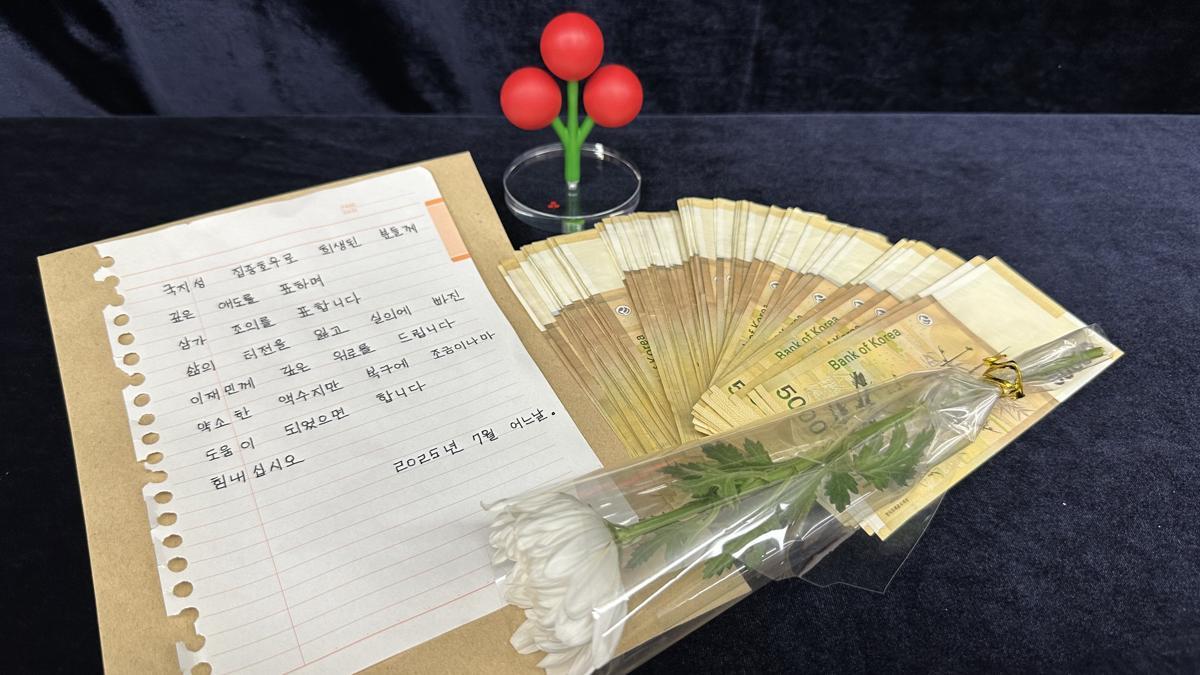 국지성 집중호우로 희생된 분들께
깊은 애도를 표하며
삼가 조의를 표합니다
삶의 터전을 잃고 실의에 빠진
이재민께 깊은 위로를 드립니다
약소한 액수지만 복구에 조금이나마
도움이 되었으면 합니다
힘내십시오
2025년 7월 어느날.
Bank of Korea
Bank of Korea
50